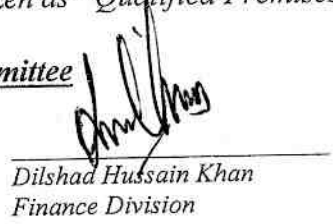 en as "Qualified Premises
mmittee
Dilshad Hussain Khan
Finance Division